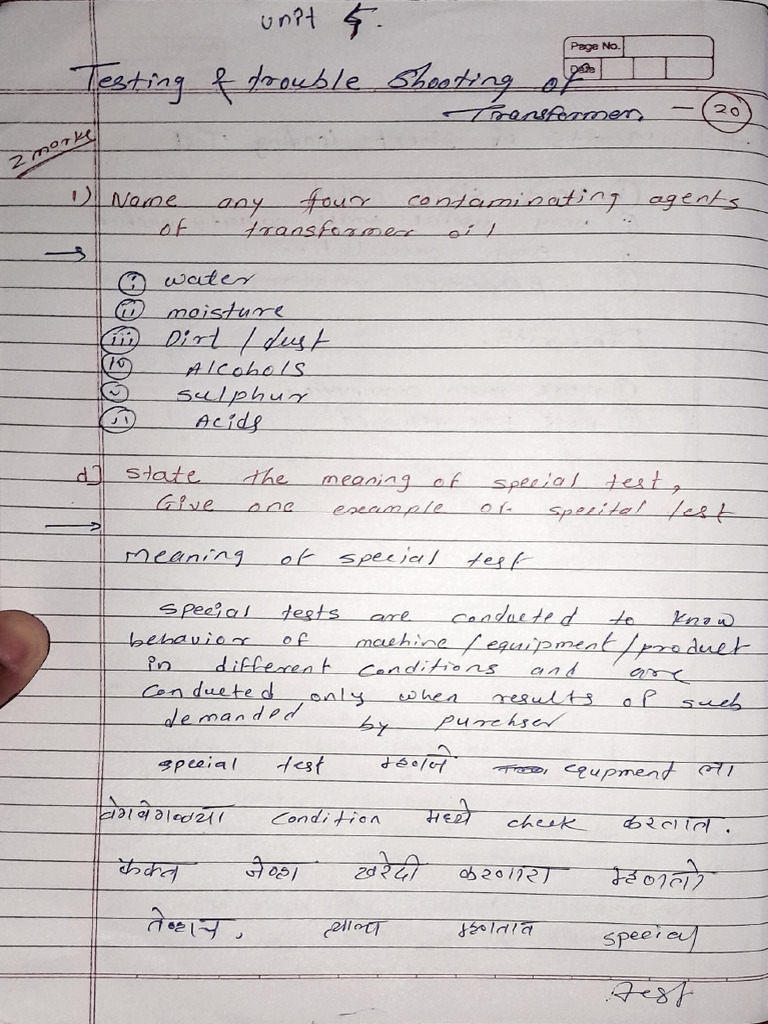 unit 5.
Page No.
Date
Testing & trouble shooting of
Transformer. - 20
2 marks
1) Name any four contaminating agents
of transformer oil
→
i water
ii moisture
iii Dirt / dust
iv Alcohols
v sulphur
vi Acids
d] state the meaning of special test,
Give one example of specital test
→
meaning of special test
special tests are conducted to know
behavior of machine/equipment/product
in different conditions and are
conducted only when results of such
demanded by purchser
special test म्हणजे equpment ला
वेगवेगळ्या condition मध्ये check करतात.
फक्त जेव्हा खरेदी करणारा म्हणतो
तेव्हाच, त्याला म्हणतात special
test